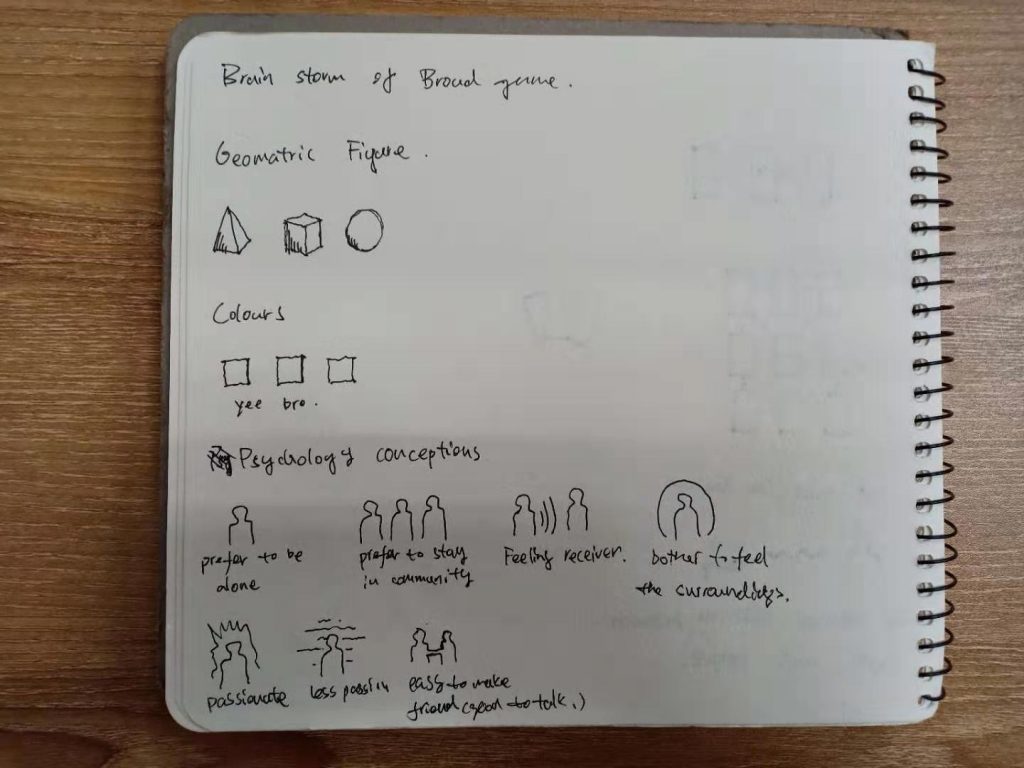 Brain storm of Broad game.
Geomatric Figure.
Colours
yee bro.
Psychology conceptions
prefer to be
alone
prefer to stay
in community
Feeling receiver.
bother to feel
the surroundings.
passionate
less passion
easy to make
friend (good to talk.)